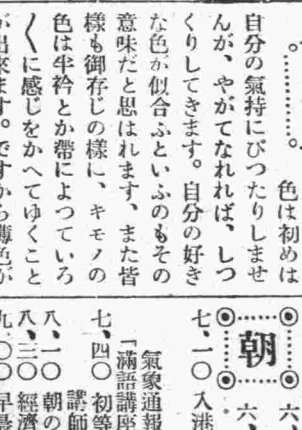 色は初めは
自分の氣持にぴつたりしませ
んが、やがてなれれば、しつ
くりしてきます。自分の好き
な色が似合ふといふのもその
意味だと思はれます、また皆
樣も御存じの樣に、キモノの
色は半衿とか帶によつていろ
〱に感じをかへてゆくこと
が出來ます。ですから薄色が
六、
朝
六、
七、一〇 入港
氣象通報
「滿語講座
七、四〇 初等
講師
八、一〇 朝の
八、三〇 經濟
九、〇〇 早